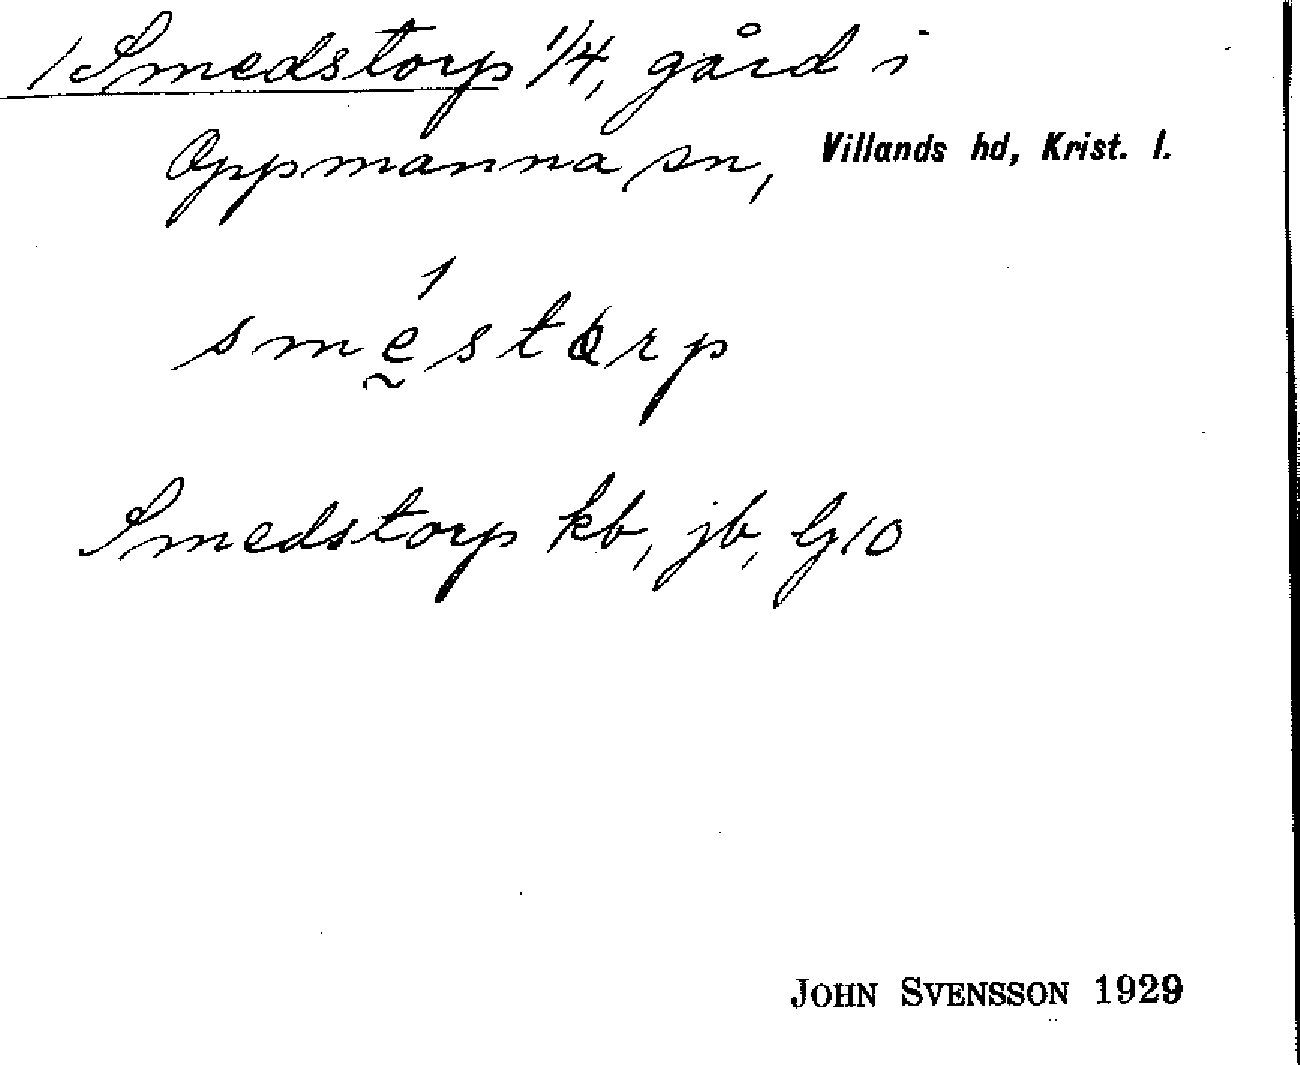 / Smedstorp 1/4, gård i
Oppmanna sn, Villands hd, Krist. l.
smestorp
Smedstorp kb, jb, Gj 10
JOHN SVENSSON 1929